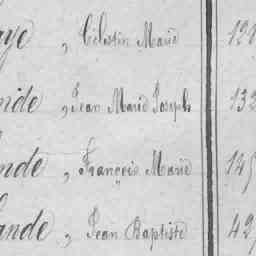 aye, Célestin Marie 121
nde, Jean Marie Joseph 132
nde, François Marie 145
ande, Jean Baptiste 427